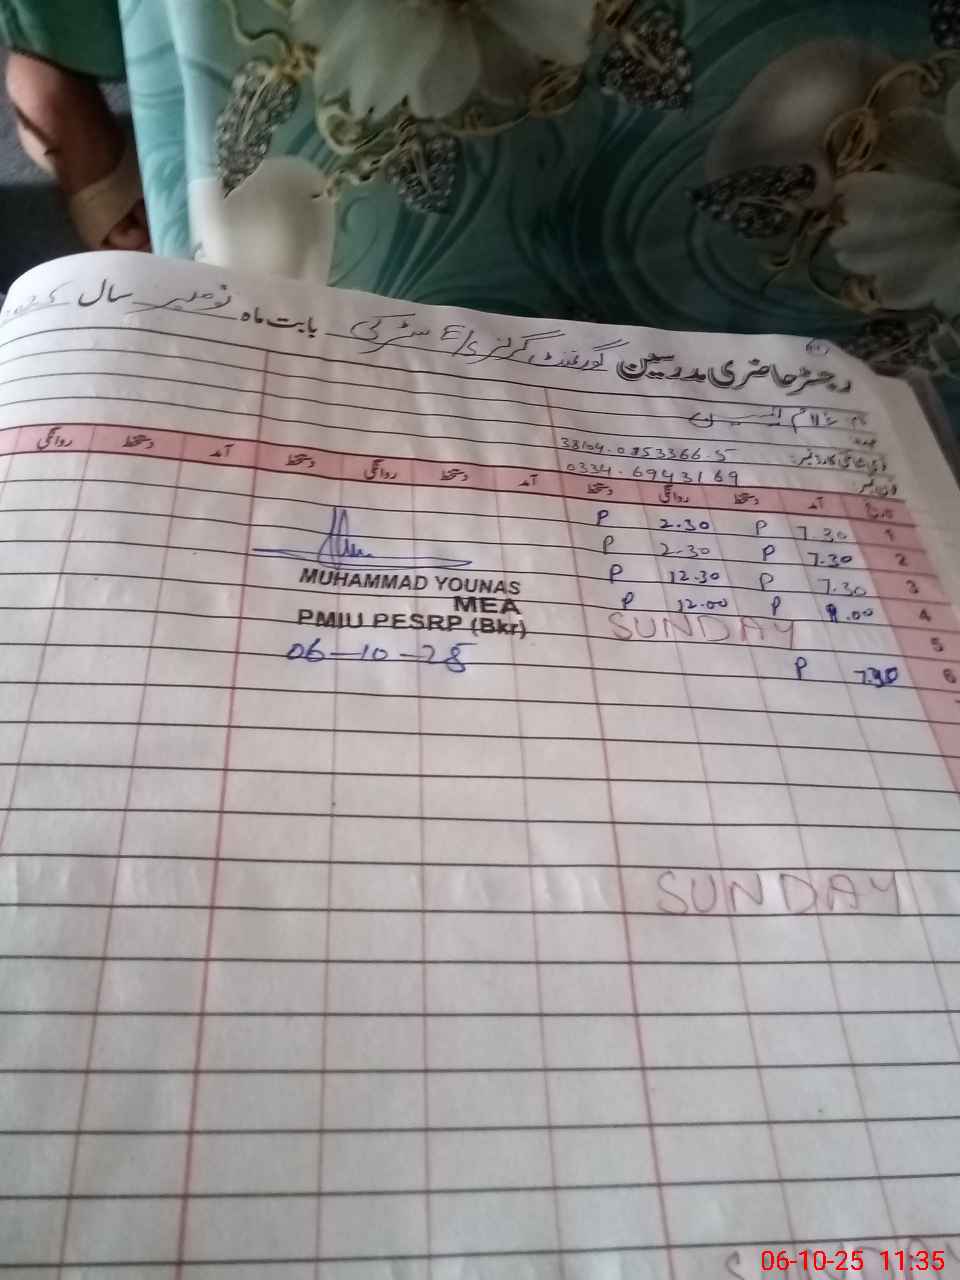 رجسٹر حاضری مدرسین گورنمنٹ گرلز E/S سٹرکی بابت ماہ نومبر سال
نام غلام یٰسین
عہدہ
قومی شناختی کارڈ نمبر: 38104.0853366.5
فون نمبر: 0334.6943169
تاریخ آمد دستخط روانگی دستخط آمد دستخط روانگی دستخط آمد دستخط روانگی
1 7.30 P 2.30 P
2 7.30 P 2.30 P
3 7.30 P 12.30 P
4 8.00 P 12.00 P
5 SUNDAY
6 7.30 P
MUHAMMAD YOUNAS
MEA
PMIU PESRP (Bkr)
06-10-25
SUNDAY
06-10-25 11:35